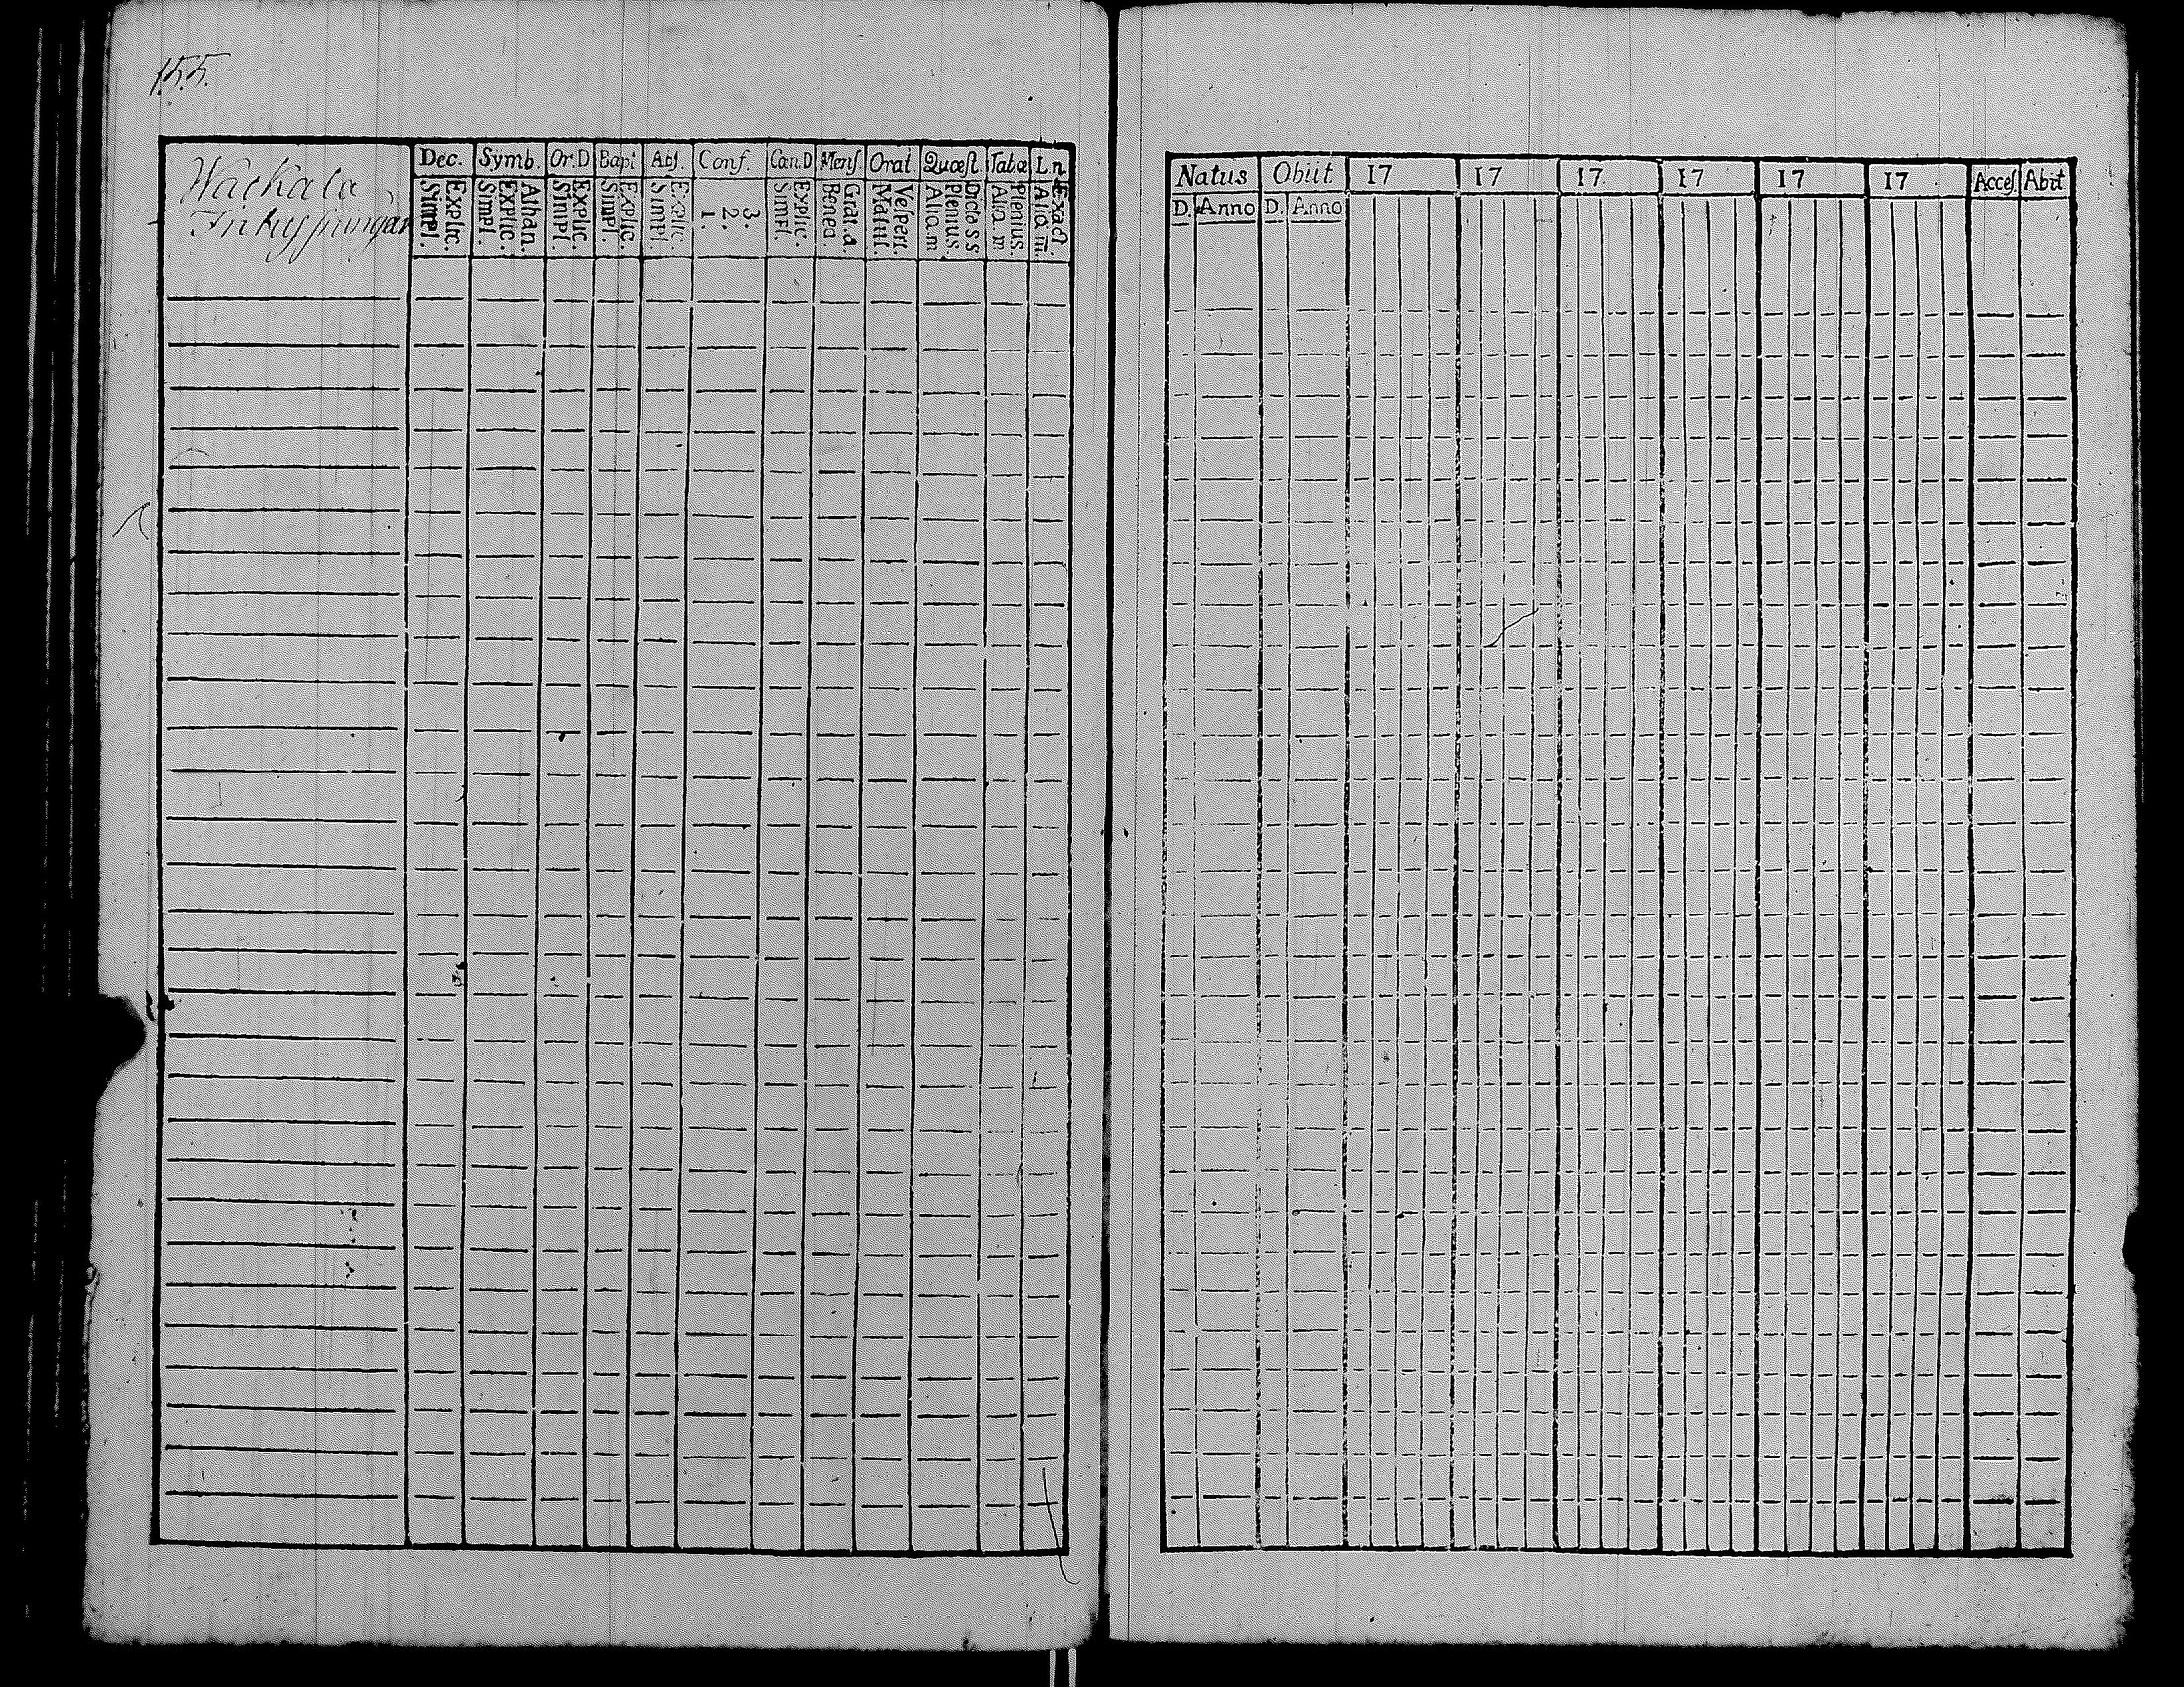 155.
Wäckala
Inhyssingar
Dec. Symb. Or.D Bapt Abs. Conf. Cœn.D Mens Orat Quæst. Tabæ Ln
Explic. Simpl. Athan. Explic. Simpl. Explic. Simpl. Explic. Simpl. Explic. Simpl. 3. 2. 1. Explic. Simpl. Grat.a. Bened. Vespert. Matut. Dicta s s Plenius. Aliq.m Plenius Aliq.m Exact Aliq.m
Natus Obiit 17 17 17 17 17 17 Acces Abit
D. Anno D. Anno